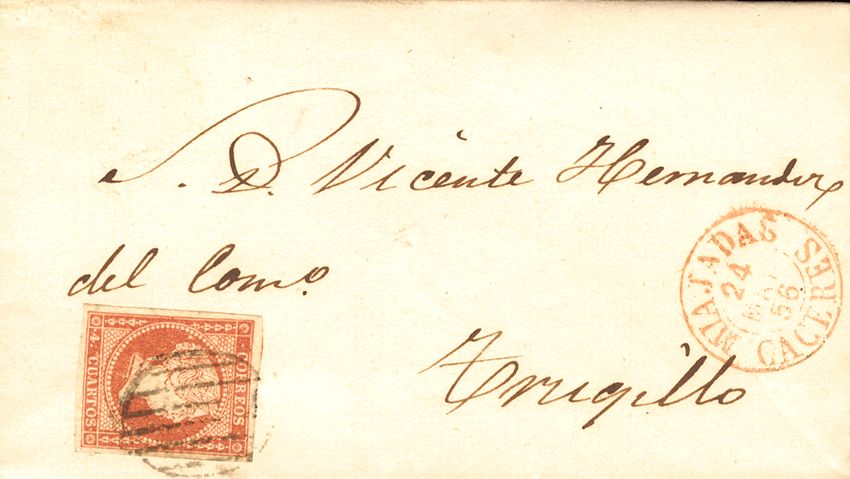 S. D. Vicente Hernandez
del Com.o
Trugillo
MIAJADAS
24
56
CACERES
CORREOS
4 CUARTOS